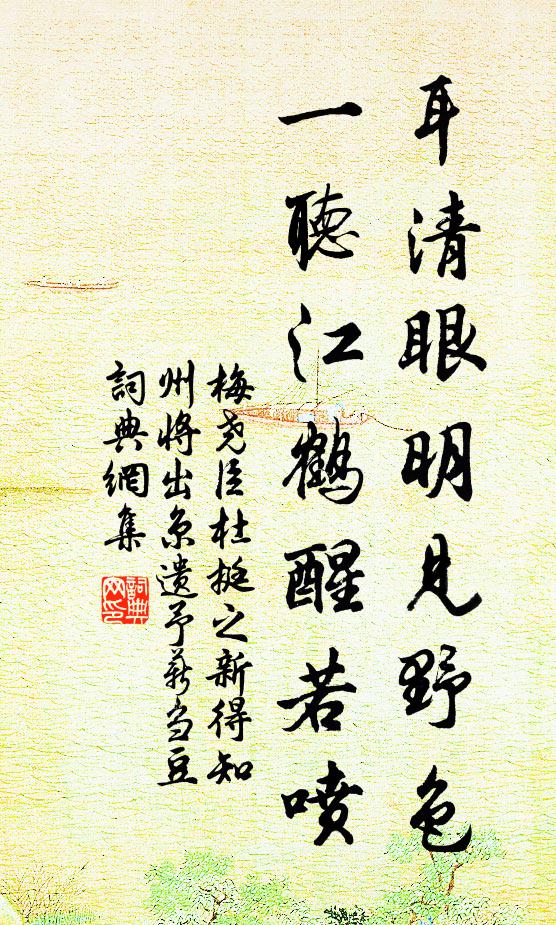 耳清眼明見野色
一聽江鶴醒若噴
梅尧臣杜挺之新得知
州將出京遺予薪芻豆
詞典網集
詞典網印